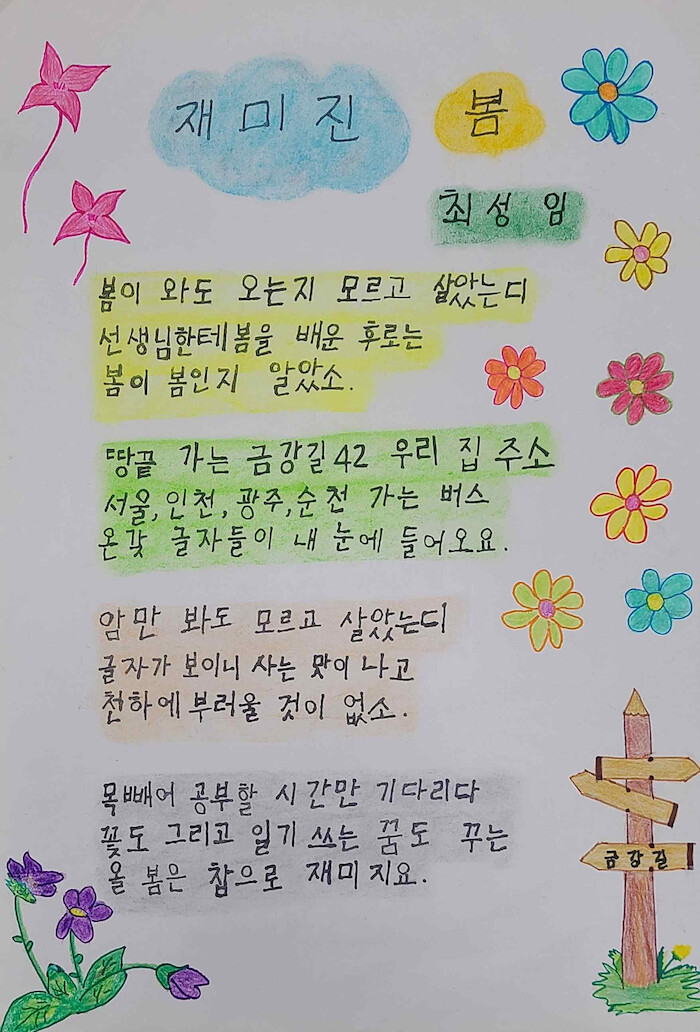 재미진 봄
최성임
봄이 와도 오는지 모르고 살았는디
선생님한테 봄을 배운 후로는
봄이 봄인지 알았소.
땅끝 가는 금강길 42 우리 집 주소
서울, 인천, 광주, 순천 가는 버스
온갖 글자들이 내 눈에 들어오요.
암만 봐도 모르고 살았는디
글자가 보이니 사는 맛이 나고
천하에 부러울 것이 없소.
목빼어 공부할 시간만 기다리다
꽃도 그리고 일기 쓰는 꿈도 꾸는
올 봄은 참으로 재미지요.
금강길